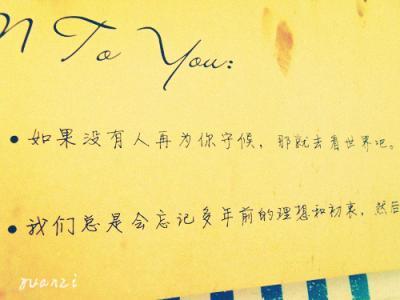 To You:
• 如果没有人再为你守候，那就去看世界吧。
• 我们总是会忘记多年前的理想和初衷，然后
yuanzi